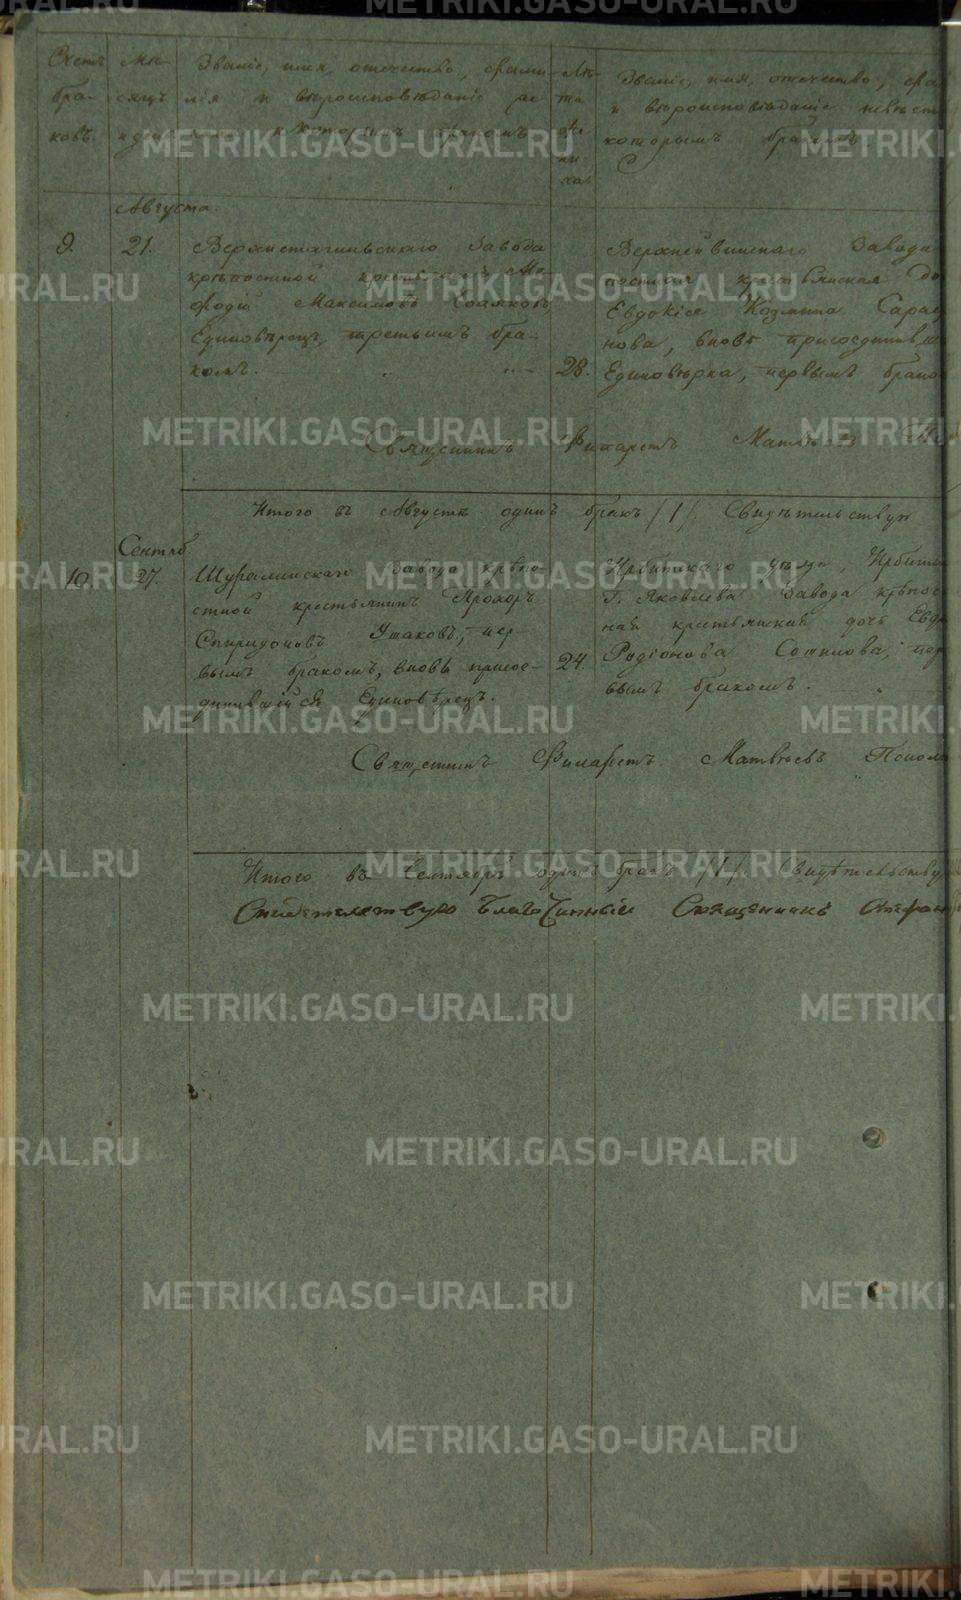 Счетъ бра- ковъ.
Мѣ- сяцъ и день
Званіе, имя, отечество, фами-
лія и вѣроисповѣданіе же-
ниха, и которымъ бракомъ
Лѣ- та же- ни- ха.
Званіе, имя, отечество, фа
и вѣроисповѣданіе невѣст
которымъ бракомъ
Августа.
9. 21.
Верхнетагильскаго завода
крѣпостной крестьянинъ Ме-
фодій Максимовъ
Единовѣрецъ, третьимъ бра-
комъ.
28.
Верхнейвинскаго Завода
постная крестьянская до
Евдокія Козмина Сараф
нова, вновь присоединивш
Единовѣрка, первымъ брако
Священникъ Филаретъ Матвѣевъ
Итого въ Августѣ одинъ бракъ /1/. Свидѣтельствую
Сентяб
10. 27.
Шуралинскаго Завода крѣпо-
стной крестьянинъ Прохоръ
Спиридоновъ Ушаковъ, пер-
вымъ бракомъ, вновь присое-
динившійся Единовѣрецъ.
24.
Ирбитскаго уѣзда, Ирбитск
Г. Яковлева Завода крѣпос
ная крестьянская дочь Евд
Родіонова Сотилова, пер
вымъ бракомъ.
Священникъ Филаретъ Матвѣевъ Понома
Итого въ Сентябрѣ одинъ бракъ /1/. Свидѣтельству
Свидетелствую Благочинный Священникъ Стефан
METRIKI.GASO-URAL.RU